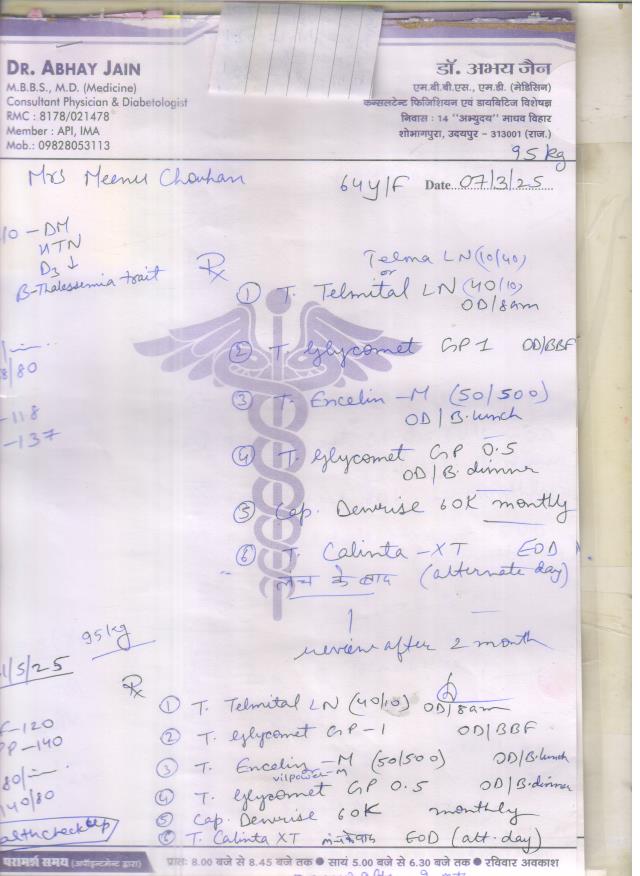 DR. ABHAY JAIN
M.B.B.S., M.D. (Medicine)
Consultant Physician & Diabetologist
RMC : 8178/021478
Member : API, IMA
Mob.: 09828053113
डॉ. अभय जैन
एम.बी.बी.एस., एम.डी. (मेडिसिन)
कन्सलटेन्ट फिजिशियन एवं डायबिटिज विशेषज्ञ
निवास : 14 "अभ्युदय" माधव विहार
शोभागपुरा, उदयपुर – 313001 (राज.)
95 kg
Mrs Meenu Chouhan 64y/F Date 07/3/25
/0 - DM
HTN
D3 ↓
B-Thalessemia trait
8/80
-118
-137
Rx
Telma LN (10/40)
or
① T. Telmital LN (40/10)
OD/8am
② T. Glycomet GP 1 OD/BBF
③ T. Encelin -M (50/500)
OD/B.lunch
④ T. Glycomet GP 0.5
OD/B.dinner
⑤ Cap. Denvrise 60K monthly
⑥ T. Calinta -XT EOD
लंच के बाद (alternate day)
review after 2 month
95kg
1/5/25
F-120
PP-140
80/
140/80
ealthcheckup
Rx
① T. Telmital LN (40/10) OD/8am
② T. Glycomet GP-1 OD/BBF
③ T. Encelin -M (50/500) OD/B.lunch
vilpower-M
④ T. Glycomet GP 0.5 OD/B.dinner
⑤ Cap. Denvrise 60K monthly
⑥ T. Calinta XT लंच के बाद EOD (alt. day)
परामर्श समय (अपॉइन्टमेन्ट द्वारा) प्रातः 8.00 बजे से 8.45 बजे तक ● सायं 5.00 बजे से 6.30 बजे तक ● रविवार अवकाश